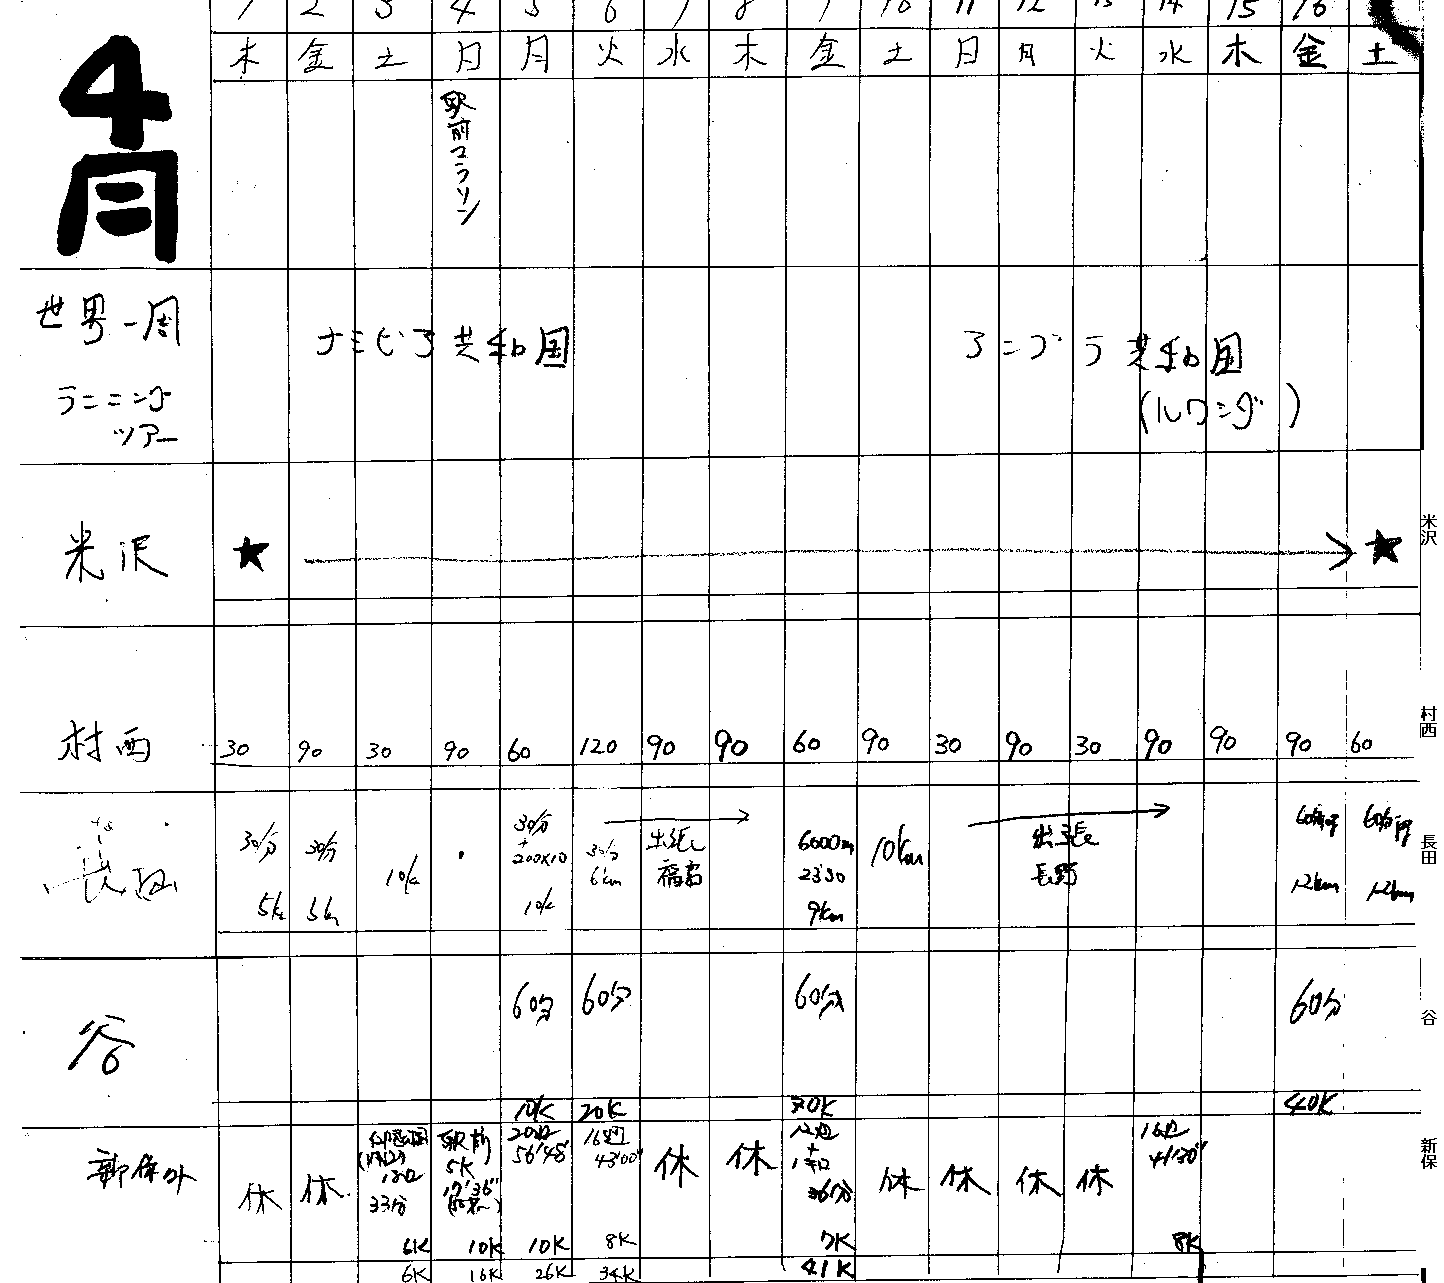 1 2 3 4 5 6 7 8 9 10 11 12 13 14 15 16
4月
木 金 土 日 月 火 水 木 金 土 日 月 火 水 木 金 土
駅前マラソン
世界一周
ランニング
ツアー
ナミビア共和国
アンゴラ共和国
(ルワンダ)
米沢
★ ★
米沢
村西
30 90 30 90 60 120 90 90 60 90 30 90 30 90 90 90 60
村西
長田
30分 30分 10k 30分 30分 出張 6000m 10km 出張 60分 60分
+
200×10 6km 福島 23'30 長野
5k 5k 10k 9km 12km 12km
長田
谷
60分 60分 60分 60分
10K 20K 30K 40K
谷
新保
休 休 休 休 休 休 休 休
33分
駅前
5K
17'36"
20周
56'48"
16周
43'00"
12周
+
36分
16周
41'30"
6K 10K 10K 8K 7K 8K
6K 16K 26K 34K 41K
新保